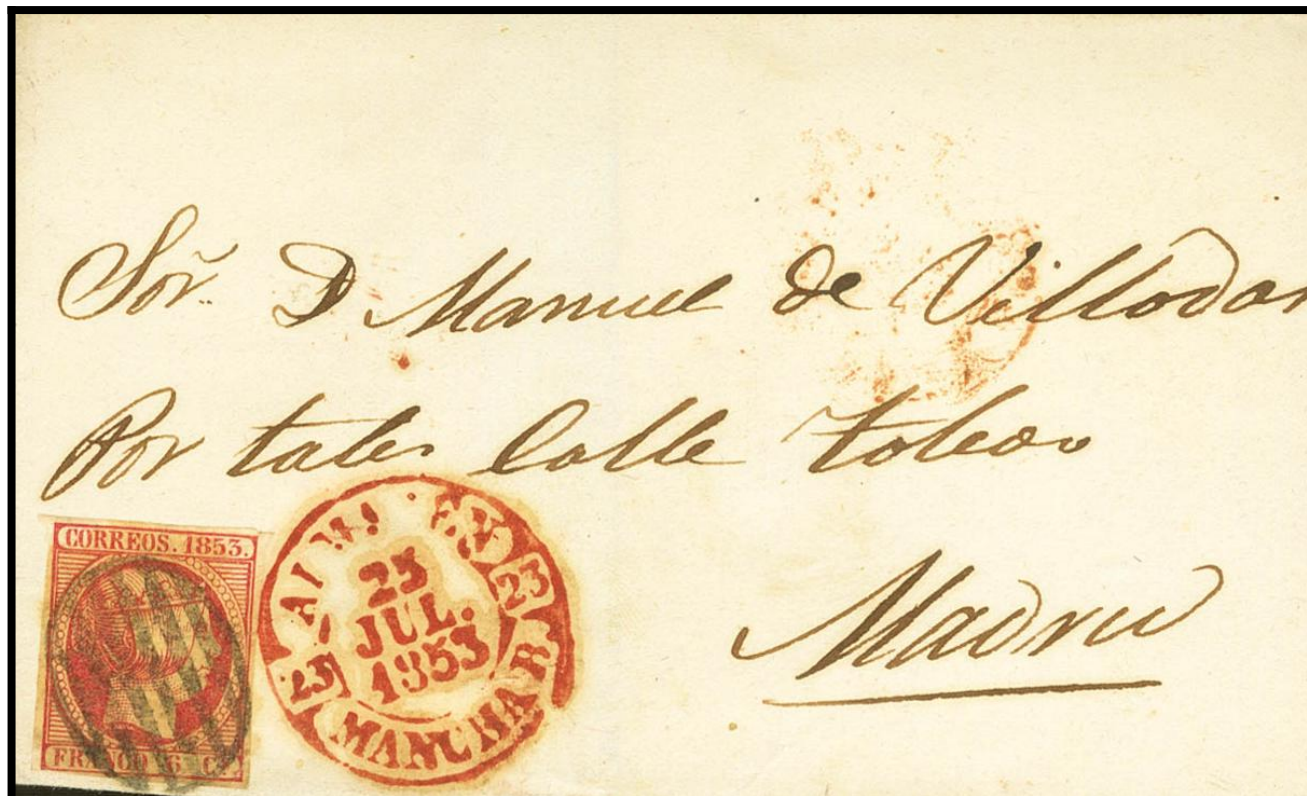 Sor. D Manuel de Villodas
Por tales Calle toledo
Madrid
CORREOS. 1853.
FRANCO 6 Cs.
23
JUL.
1853
23
23
MANCHA R